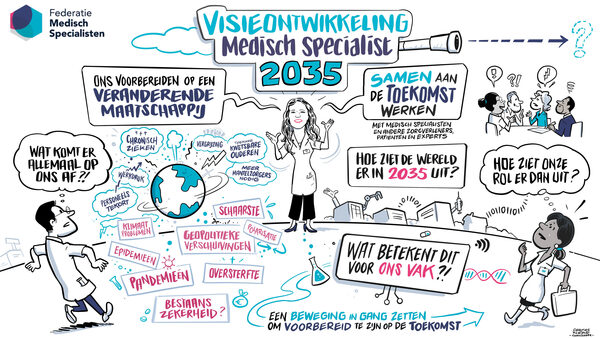 Federatie
Medisch
Specialisten
VISIEONTWIKKELING
MEDISCH SPECIALIST
2035
ONS VOORBEREIDEN OP EEN
VERANDERENDE
MAATSCHAPPIJ
SAMEN AAN
DE TOEKOMST
WERKEN
MET MEDISCH SPECIALISTEN
EN ANDERE ZORGVERLENERS,
PATIENTEN EN EXPERTS
WAT KOMT ER
ALLEMAAL OP
ONS AF?!
CHRONISCH
ZIEKEN
VERGRIJZING
KWETSBARE
OUDEREN
MEER
MANTELZORGERS
NODIG
WERKDRUK
PERSONEELS
TEKORT
KLIMAAT
PROBLEMEN
EPIDEMIEËN
PANDEMIEËN
SCHAARSTE
GEOPOLITIEKE
VERSCHUIVINGEN
POLARISATIE
OVERSTERFTE
BESTAANS
ZEKERHEID?
HOE ZIET DE WERELD
ER IN 2035 UIT?
HOE ZIET ONZE
ROL ER DAN UIT?
WAT BETEKENT DIT
VOOR ONS VAK?!
EEN BEWEGING IN GANG ZETTEN
OM VOORBEREID TE ZIJN OP DE TOEKOMST